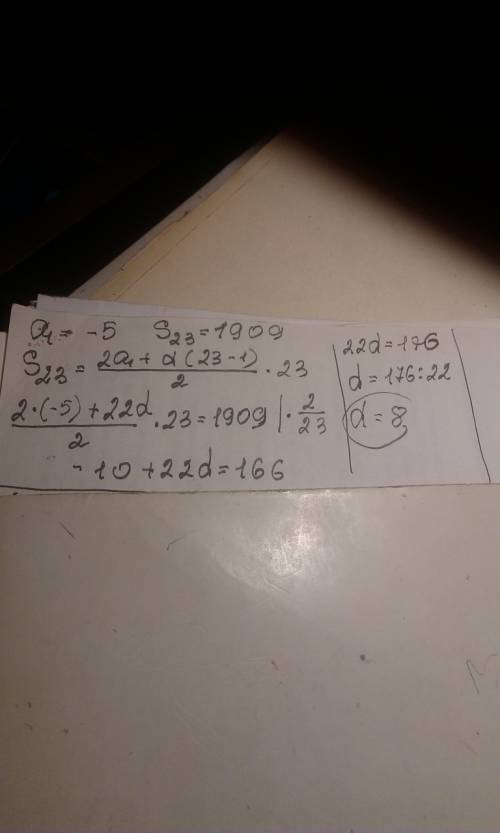 a₁ = -5 S₂₃ = 1909
S₂₃ = (2a₁ + d(23-1))/2 · 23
(2·(-5) + 22d)/2 · 23 = 1909 | · 2/23
-10 + 22d = 166
22d = 176
d = 176:22
d = 8